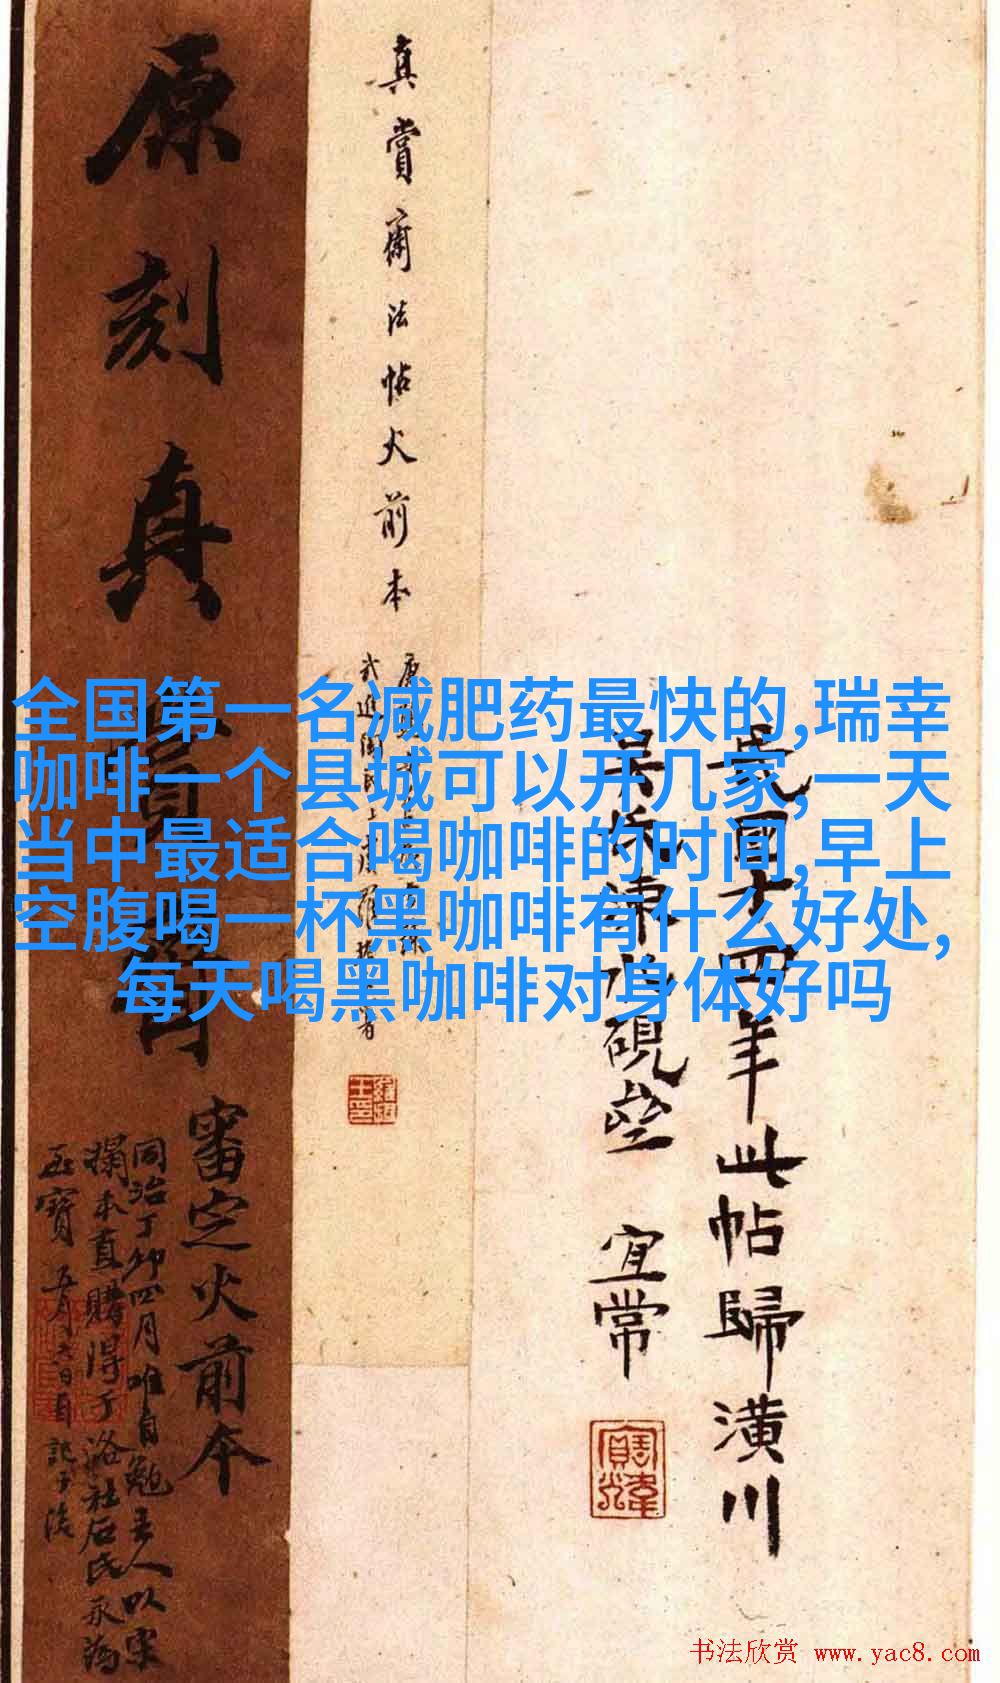 民國十四年此帖歸潢川
吴氏凍水硯㘭 宜常
真賞齋法帖火前本
原刻真賞齋
審定火前本
同治丁卯四月唯自勉主人以宋
全国第一名减肥药最快的,瑞幸
咖啡一个县城可以开几家,一天
当中最适合喝咖啡的时间,早上
空腹喝一杯黑咖啡有什么好处,
每天喝黑咖啡对身体好吗
书法欣赏 www.yac8.com